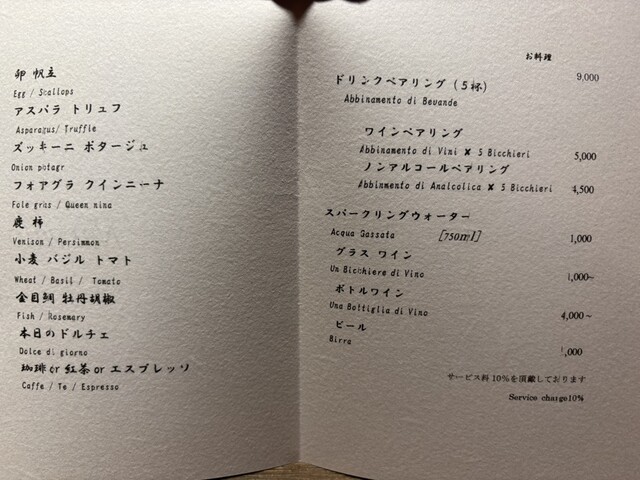 卵 帆立
Egg / Scallops
アスパラ トリュフ
Asparagus/ Truffle
ズッキーニ ポタージュ
Onion potagr
フォアグラ クインニーナ
Foie gras / Queen nina
鹿 柿
Venison / Persimmon
小麦 バジル トマト
Wheat / Basil / Tomato
金目鯛 牡丹胡椒
Fish / Rosemary
本日のドルチェ
Dolce di giorno
珈琲 or 紅茶 or エスプレッソ
Caffe / Te / Espresso
お料理 9,000
ドリンクペアリング (5杯)
Abbinamento di Bevande
ワインペアリング
Abbinamento di Vini × 5 Bicchieri 5,000
ノンアルコールペアリング
Abbinmento di Analcolica × 5 Bicchieri 4,500
スパークリングウォーター
Acqua Gassata [750ml] 1,000
グラス ワイン
Un Bicchiere di Vino 1,000~
ボトルワイン
Una Bottiglia di Vino 4,000~
ビール
Birra 1,000
サービス料 10%を頂戴しております
Service charge10%